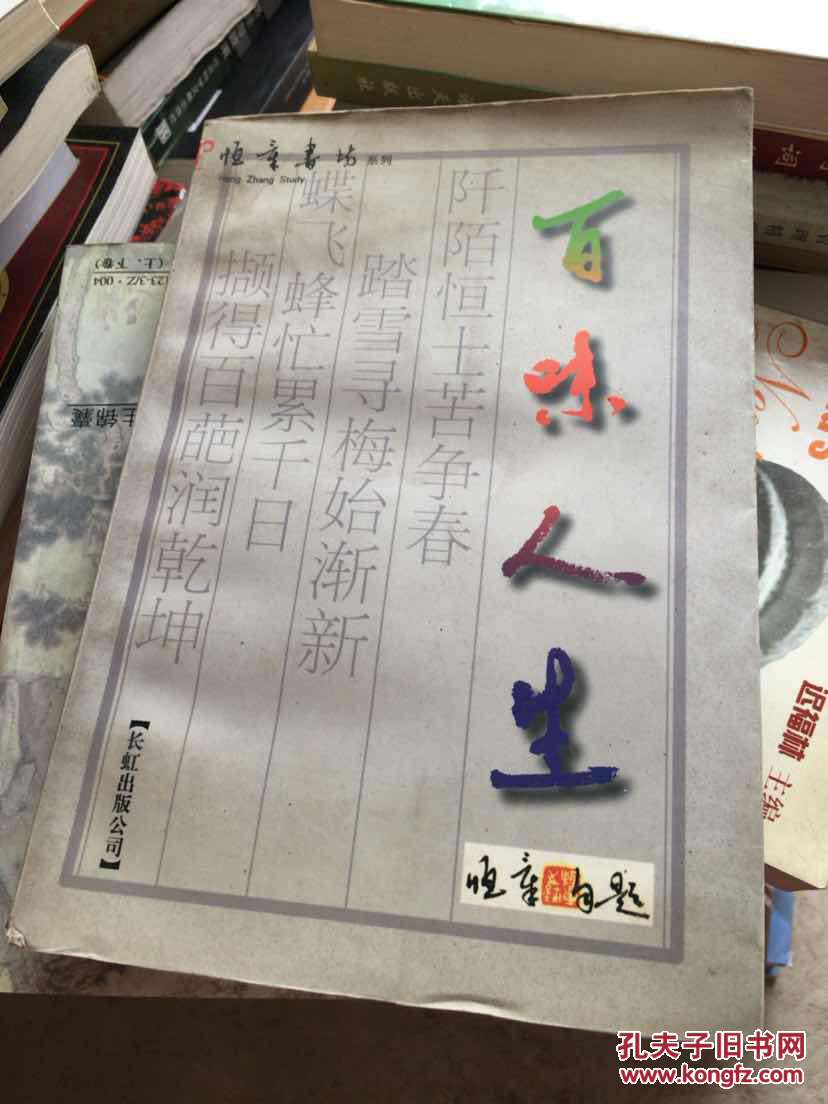 恒章书坊系列
Heng Zhang Study
百味人生
阡陌恒土苦争春
踏雪寻梅始渐新
蝶飞蜂忙累千日
撷得百葩润乾坤
【长虹出版公司】
恒章自题
(上、下卷)
123-3/Z·004
生锦囊
迟福林 主编
孔夫子旧书网
www.kongfz.com